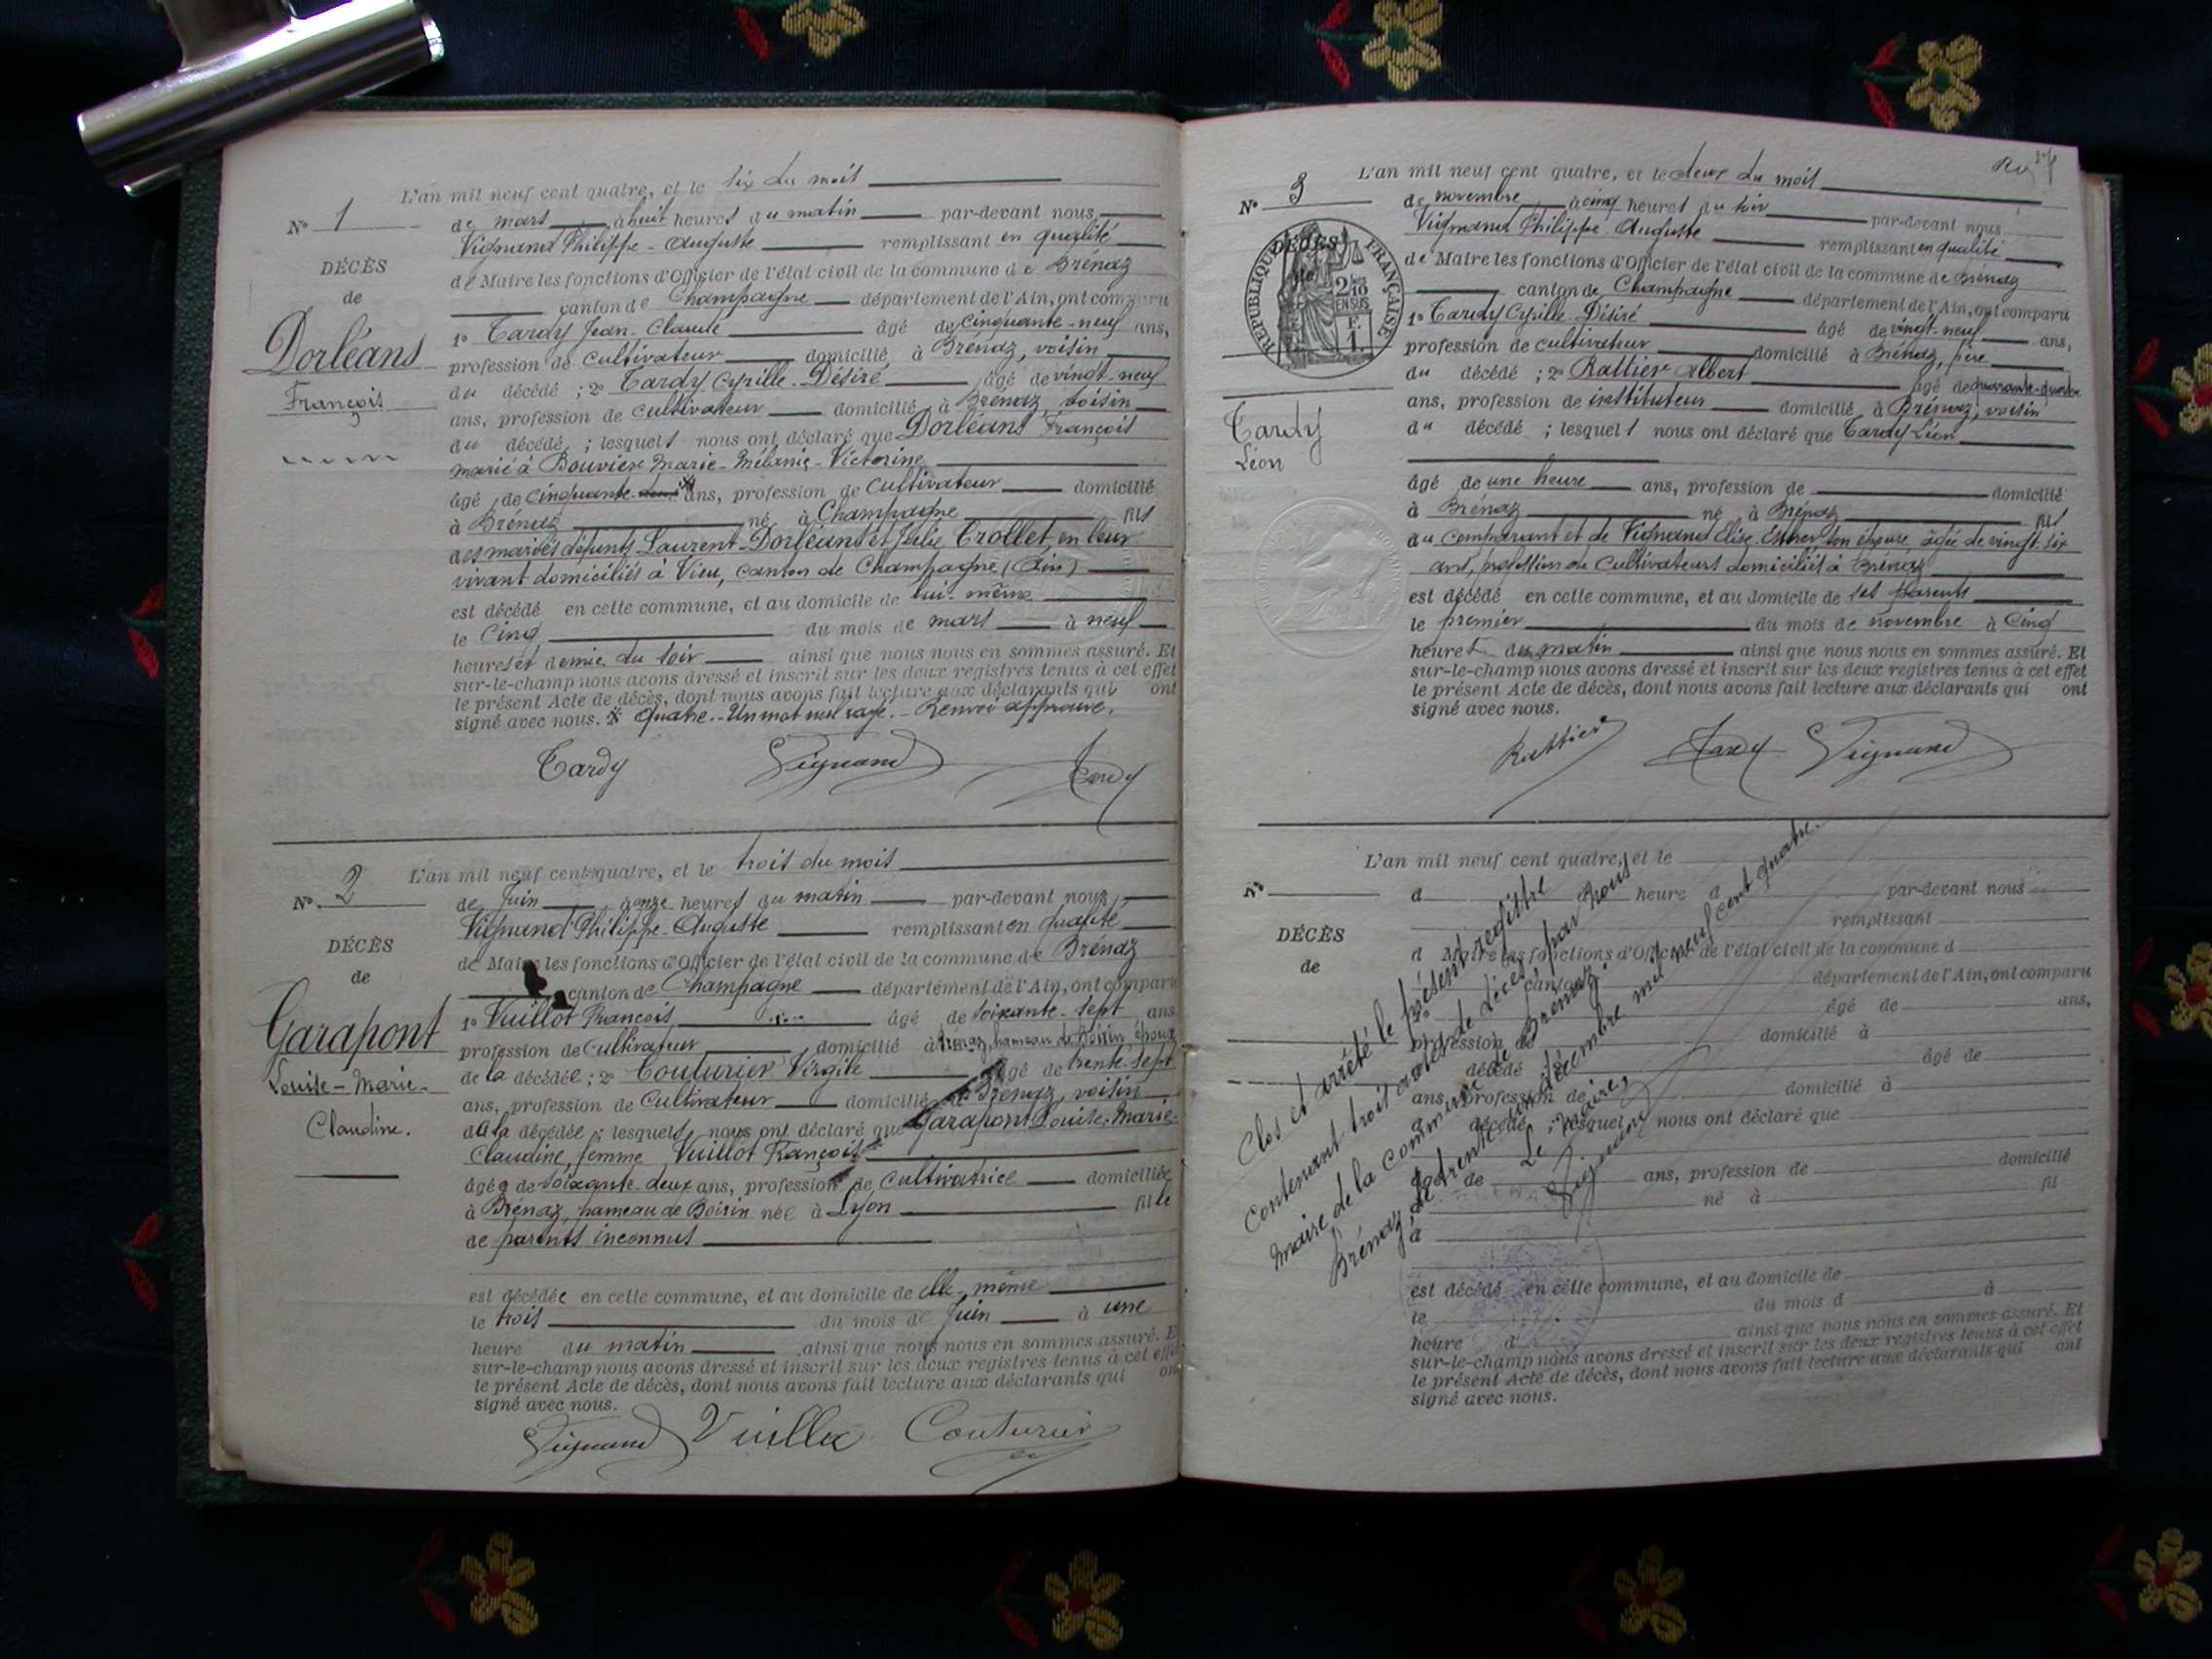 L'an mil neuf cent quatre, et le six du mois
N° 1
de mars à huit heures du matin par-devant nous
Vignand Philippe-Auguste remplissant en qualité
DÉCÈS
de Maire les fonctions d'Officier de l'état civil de la commune de Brénaz
de
canton de Champagne département de l'Ain, ont comparu
Dorléans
1° Tardy Jean-Claude âgé de cinquante-neuf ans,
profession de cultivateur domicilié à Brénaz, voisin
François
du décédé ; 2° Tardy Cyrille-Désiré âgé de vingt-neuf
ans, profession de cultivateur domicilié à Brénaz voisin
du décédé ; lesquels nous ont déclaré que Dorléans François
marié à Bouvier Marie-Mélanie-Victorine
âgé de cinquante-deux ans, profession de cultivateur domicilié
à Brénaz né à Champagne fils
des mariés défunts Laurent Dorléans et Julie Trollet, en leur
vivant domiciliés à Vieu, canton de Champagne (Ain)
est décédé en cette commune, et au domicile de lui-même
le cinq du mois de mars à neuf
heures et demie du soir ainsi que nous nous en sommes assuré. Et
sur-le-champ nous avons dressé et inscrit sur les deux registres tenus à cet effet
le présent Acte de décès, dont nous avons fait lecture aux déclarants qui ont
signé avec nous. * quatre. - Un mot nul rayé. - Renvoi approuvé.
Tardy Vignand Tardy
L'an mil neuf cent quatre, et le trois du mois
N° 2
de Juin à onze heures du matin par-devant nous
Vignand Philippe-Auguste remplissant en qualité
DÉCÈS
de Maire les fonctions d'Officier de l'état civil de la commune de Brénaz
de
canton de Champagne département de l'Ain, ont comparu
Garapont
1° Vuillot François âgé de soixante-sept ans
profession de cultivateur domicilié à Brénaz, hameau de Boirin, époux
Louise-Marie-
de la décédée ; 2° Couturier Virgile âgé de trente-sept
ans, profession de cultivateur domicilié à Brénaz, voisin
Claudine.
de la décédée ; lesquels nous ont déclaré que Garapont Louise-Marie-
Claudine, femme Vuillot François
âgée de soixante-deux ans, profession de cultivatrice domiciliée
à Brénaz, hameau de Boirin née à Lyon fille
de parents inconnus
est décédée en cette commune, et au domicile de elle-même
le trois du mois de Juin à une
heure du matin ainsi que nous nous en sommes assuré. Et
sur-le-champ nous avons dressé et inscrit sur les deux registres tenus à cet effet
le présent Acte de décès, dont nous avons fait lecture aux déclarants qui ont
signé avec nous.
Vignand Vuillot Couturier
L'an mil neuf cent quatre, et le deux du mois
N° 3
de novembre à cinq heures du soir par-devant nous
Vignand Philippe-Auguste remplissant en qualité
DÉCÈS
de
RÉPUBLIQUE FRANÇAISE
2/10 EN SUS
F. 1
de Maire les fonctions d'Officier de l'état civil de la commune de Brénaz
canton de Champagne département de l'Ain, ont comparu
1° Tardy Cyrille-Désiré âgé de vingt-neuf ans,
profession de cultivateur domicilié à Brénaz, père
du décédé ; 2° Rattier Albert âgé de quarante-quatre
ans, profession de instituteur domicilié à Brénaz, voisin
Tardy
Léon
du décédé ; lesquels nous ont déclaré que Tardy Léon
âgé de une heure ans, profession de domicilié
à Brénaz né à Brénaz fils
du comparant et de Vignand Elise-Esther son épouse âgée de vingt-six
ans, profession de cultivateurs domiciliés à Brénaz
est décédé en cette commune, et au domicile de ses parents
le premier du mois de novembre à cinq
heures du matin ainsi que nous nous en sommes assuré. Et
sur-le-champ nous avons dressé et inscrit sur les deux registres tenus à cet effet
le présent Acte de décès, dont nous avons fait lecture aux déclarants qui ont
signé avec nous.
Rattier Tardy Vignand
L'an mil neuf cent quatre, et le
N°
à heure d par-devant nous
remplissant
DÉCÈS
d Maire les fonctions d'Officier de l'état civil de la commune d
de
canton département de l'Ain, ont comparu
1° âgé de ans,
profession de domicilié à
décédé ; 2° âgé de
ans, profession de domicilié à
d décédé ; lesquel nous ont déclaré que
âgé de ans, profession de domicilié
à né à fil
d
est décédé en cette commune, et au domicile de
le du mois d à
heure d ainsi que nous nous en sommes assuré. Et
sur-le-champ nous avons dressé et inscrit sur les deux registres tenus à cet effet
le présent Acte de décès, dont nous avons fait lecture aux déclarants qui ont
signé avec nous.
Clos et arrêté le présent registre
contenant trois actes de décès par nous
maire de la commune de Brénaz.
Brénaz, le trente-un décembre mil neuf cent quatre.
Le Maire,
Vignand